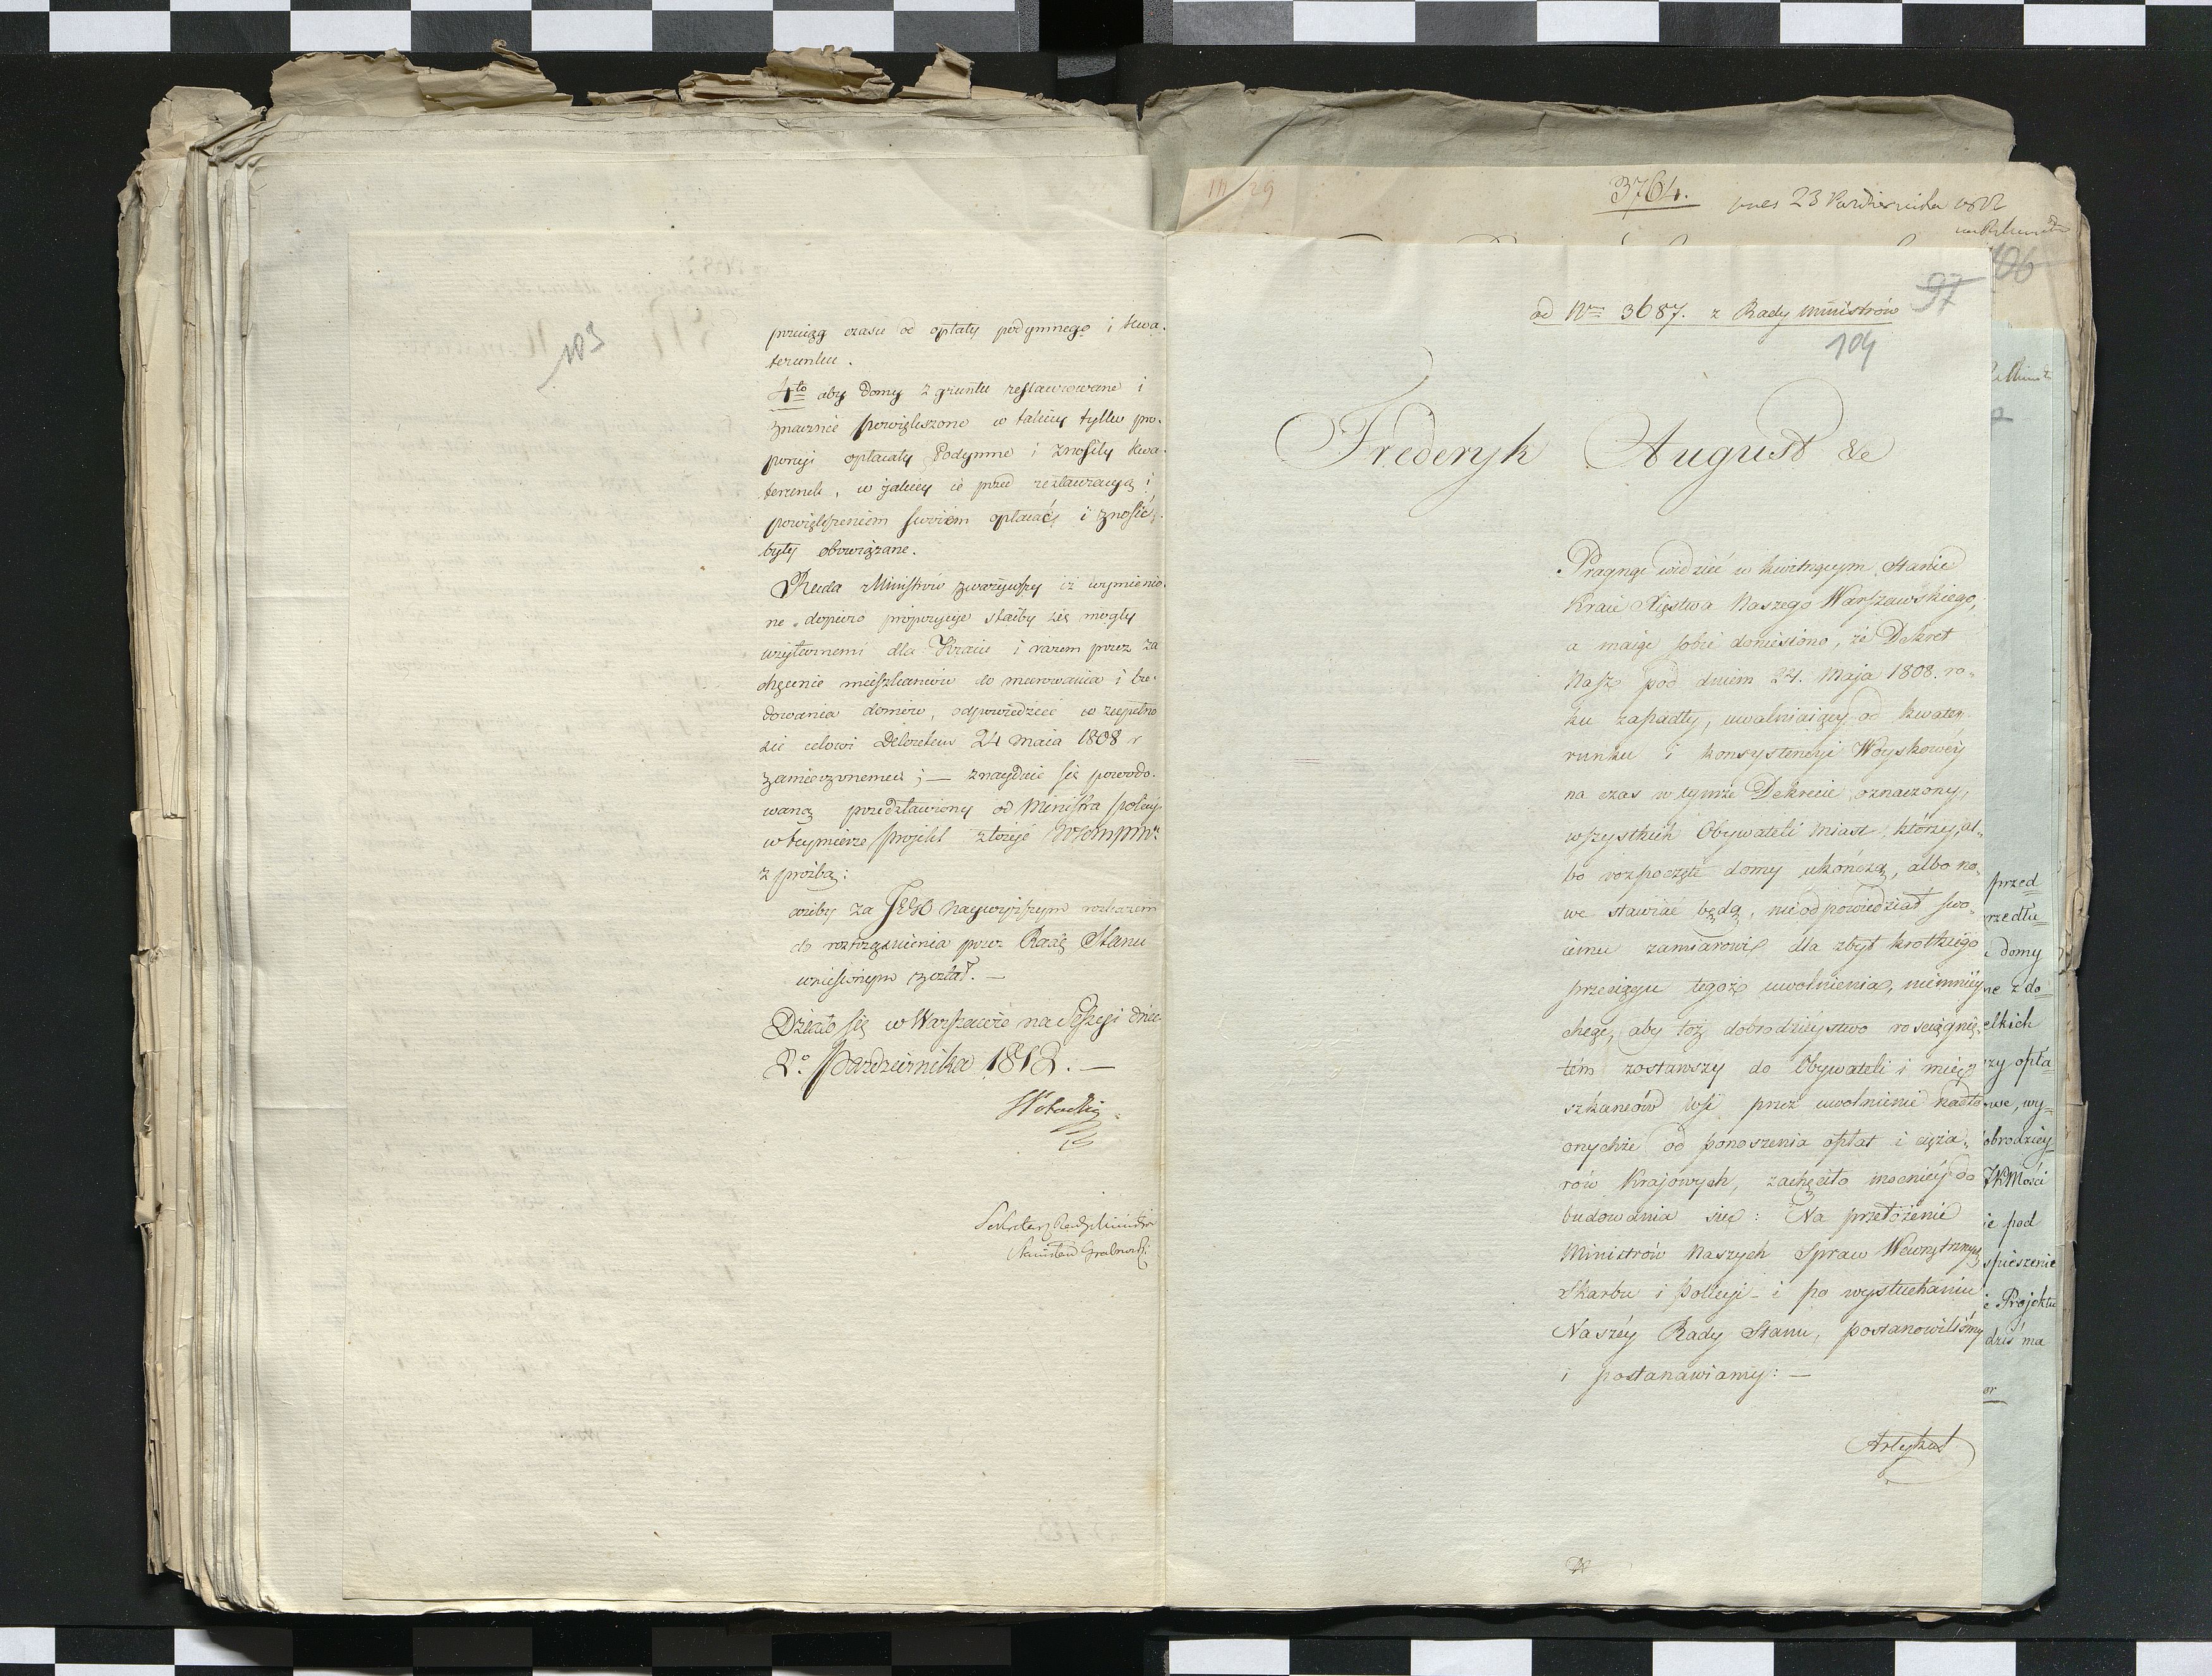 103
przeciąg czasu od opłaty podymnego i kwa-
terunku.
4to aby domy z gruntu restaurowane i
znacznie powiększone w takiey tylko pro-
porcyi opłacały Podymne i znosiły kwa-
terunek, w jakiey ie przed restauracyą i
powiększeniem swoiem opłacać i znosić
były obowiązane.
Rada Ministrów zważywszy iż wymienio-
ne dopiero propozycye stałby się mogły
użytecznemi dla Kraiu i razem przez za
chęcenie mieszkańców do murowania i bu-
dowania domów, odpowiedzieć w zupełno
ści celowi Dekretem 24 Maia 1808 r
zamierzonemu; — znayduie się powodo-
waną przedstawiony od Ministra Policyi
w teymierze projekt złożyć
z prośbą:
ażeby za JEGO naywyższym rozkazem
do roztrząśnienia przez Radę Stanu
wniesionym został. —
Działo się w Warszawie na Sessyi dnia
2o Października 1812. —
Sekretarz Rady Ministrów
Stanisław Grabowski
3764.
dnes 23 Października 1812
106
od Nru 3687. z Rady Ministrów
97
104
Frederyk August &c
Pragnąc widzieć w kwitnącym stanie
Kraie Xięstwa Naszego Warszawskiego,
a maiąc sobie doniesiono, że Dekret
Nasz pod dniem 24. Maja 1808. ro-
ku zapadły, uwalniaiący od kwate-
runku i konsystencyi Woyskowéy
na czas w tymże Dekrecie oznaczony,
wszystkich Obywateli Miast, którzy al-
bo rozpoczęte domy ukończą, albo no-
we stawiać będą, nieodpowiedział swo-
iemu zamiarowi dla zbyt krotkiego
przeciągu tegoż uwolnienia, niemniéy
chcąc, aby toż dobrodzieystwo rosciągnię-
tém zostawszy do Obywateli i mie-
szkańców Wsi przez uwolnienie nadto
onychże od ponoszenia opłat i cięża-
rów Krajowych, zachęciło mocniéy do
budowania się: Na przełożenie
Ministrów Naszych Spraw Wewnętrznych
Skarbu i Policyi – i po wysłuchaniu
Naszéy Rady Stanu, postanowiliśmy
i postanawiamy: —
Artykuł
przed
rzedłu=
domy
ne z do=
elkich
zy opła=
owe, wy=
obrodziey
JKMości
ie pod
spieszenie
Projektu
dziś ma